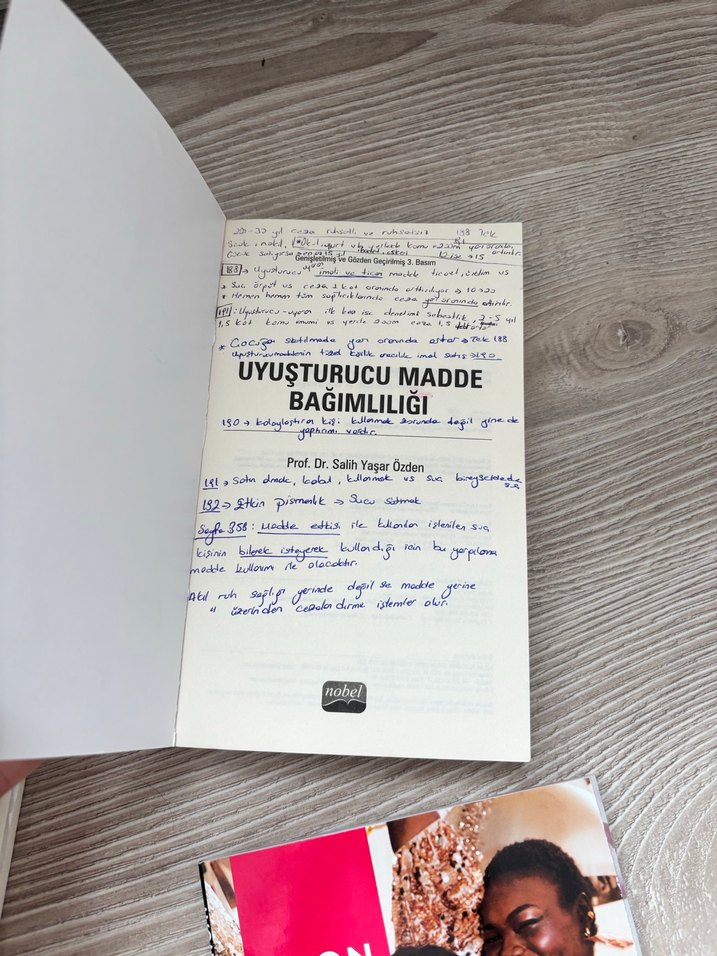 20-30 yıl ceza ruhsatlı ve ruhsatsız 188 Tek
Genişletilmiş ve Gözden Geçirilmiş 3. Basım
188 → Uyuşturucu uyarıcı imali ve ticari madde ticaret, üretim vs
* Suç örgüt vs ceza 1 kat oranında arttırılıyor → 10→20
* Hemen hemen tüm sağlıkçılarında ceza yarı oranında arttırılır.
191: Uyuşturucu-uyarıcı ilk kez ise denetimli serbestlik, 2-5 yıl
1,5 kat kamu umumi vs yerde 200m ceza 1,5
* Çocuğa satılmada yarı oranında artar → Tek 188
uyuşturucu maddenin tüzel kişilik aracılık imal satış → 190
UYUŞTURUCU MADDE
BAĞIMLILIĞI
190 → kolaylaştıran kişi kullanmak zorunda değil yine de
yaptırımı vardır.
Prof. Dr. Salih Yaşar Özden
191 → Satın almak, kabul, kullanmak vs suç
192 → Etkin pişmanlık → Suçu
Sayfa 358: Madde etkisi ile kullanılan işlenilen suç
kişinin bilerek isteyerek kullandığı için bu yargılama
madde kullanımı ile olacaktır.
Akıl ruh sağlığı yerinde değil se madde yerine
" üzerinden cezalandırma işlemler olur.
nobel
ON